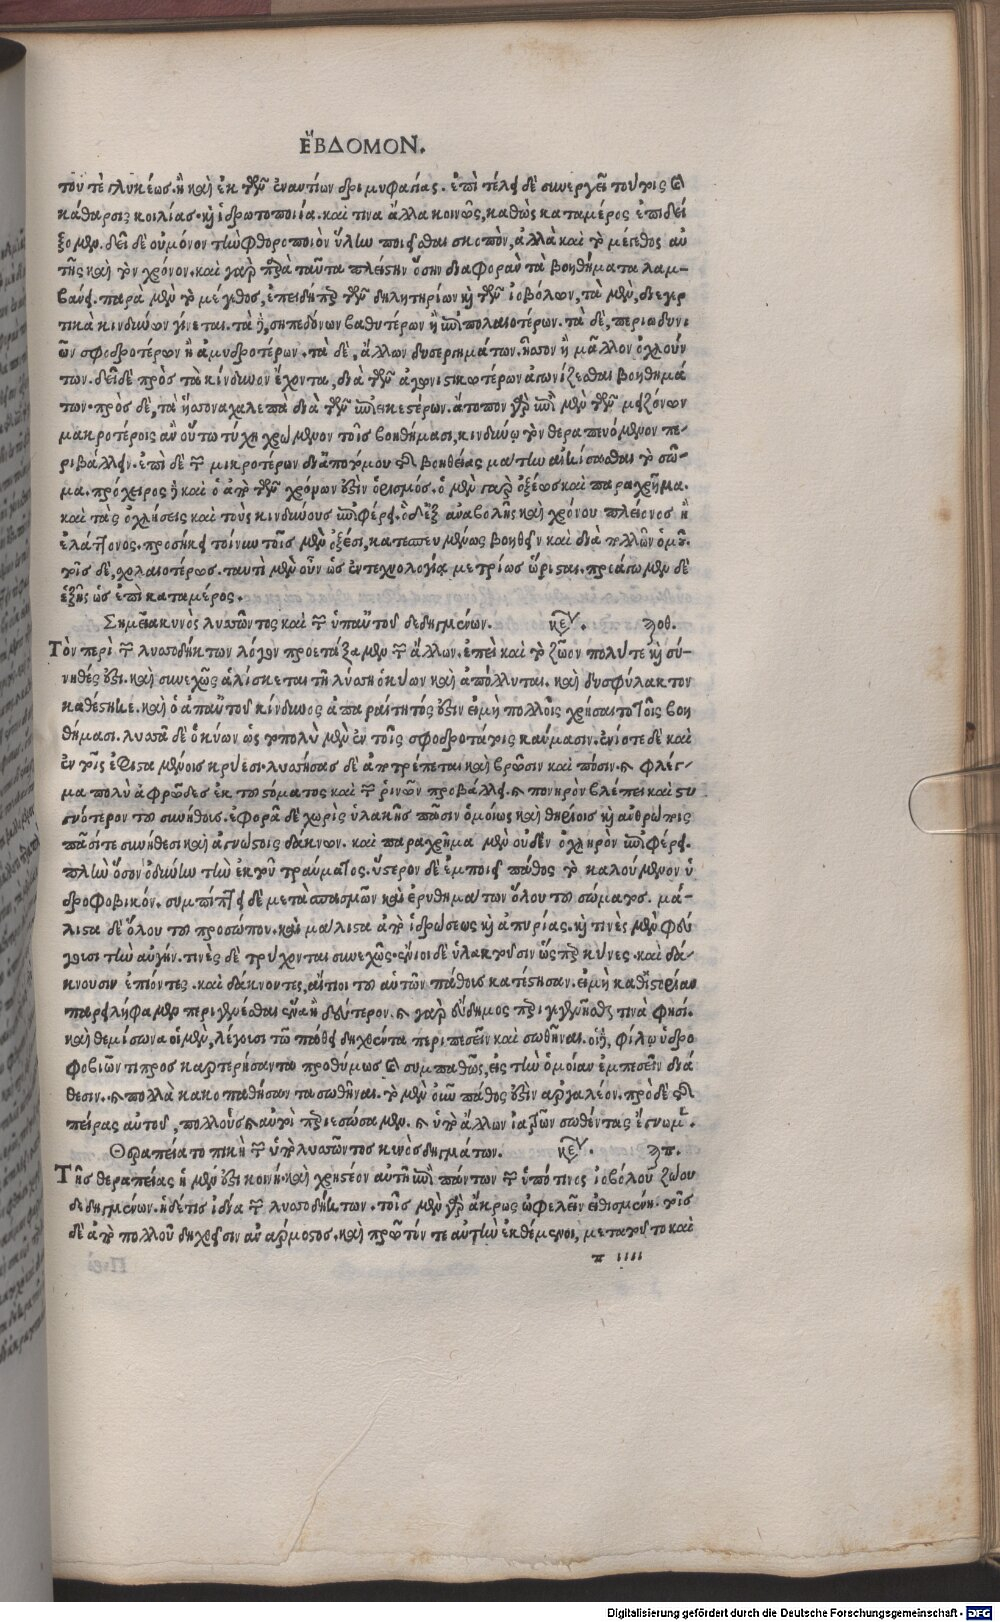 ἝΒΔΟΜΟΝ.
του τὲ γλυκέως. ἢ καὶ ἐκ τῶν ἐναντίων δριμυφαγίας. ἐπὶ τέλει δὲ συνεργεῖ τούτοις καὶ
κάθαρσις κοιλίας. καὶ ἱδρωτοποιία. καὶ τινα ἄλλα κοινῶς, καθὼς καταμέρος ἐπιδεί
ξομεν. δεῖ δὲ οὐ μόνον τὴν φθοροποιὸν ὕλην ποιεῖσθαι σκοπὸν, ἀλλὰ καὶ τὸ μέγεθος αὐ
τῆς καὶ τὸν χρόνον. καὶ γὰρ παρὰ ταῦτα πλείστην ὅσην διαφορὰν τὰ βοηθήματα λαμ-
βάνει. παρὰ μὲν τὸ μέγεθος, ἐπειδήπερ τῶν δηλητηρίων καὶ τῶν ἰοβόλων, τὰ μὲν,
τικὰ κινδύνων γίνεται. τὰ δὲ, σηπεδόνων βαθυτέρων ἢ ἐπιπολαιοτέρων. τὰ δὲ, περιωδυνι
ῶν σφοδροτέρων ἢ ἀμυδροτέρων. τὰ δὲ, ἄλλων δυσερημάτων. ἧσσον ἢ μᾶλλον ὀχλούν
των. δεῖ δὲ πρὸς τὰ κίνδυνον ἔχοντα, διὰ τῶν ἀγωνιστικωτέρων ἀγωνίζεσθαι βοηθημά
των. πρὸς δὲ, τὰ ἧσσονα χαλεπὰ διὰ τῶν ἐπιεικεστέρων. ἄτοπον γὰρ ἐπὶ μὲν τῶν μειζόνων
μακροτέροις ἂν οὕτω τύχῃ χρώμενον τοῖς βοηθήμασι, κινδύνῳ τὸν θεραπευόμενον πε-
ριβάλλειν. ἐπὶ δὲ τῶν μικροτέρων βοηθείας μάτην αἰκίσασθαι τὸ σῶ-
μα. πρόχειρος δὲ καὶ ὁ ἀπὸ τῶν χρόνων ἐστὶν ὁρισμός. ὁ μὲν γὰρ ὀξέως καὶ παραχρῆμα.
καὶ τὰς ὀχλήσεις καὶ τοὺς κινδύνους ἐπιφέρει. ὁ δὲ ἐξ ἀναβολῆς καὶ χρόνου πλείονος ἢ
ἐλάττονος. προσήκει τοίνυν τοῖς μὲν ὀξέσι, κατεπευσμένως βοηθεῖν καὶ διὰ πολλῶν ὁμοῦ.
τοῖς δὲ, σχολαιοτέρως. ταυτὶ μὲν οὖν ὡς ἐν τεχνολογίᾳ μετρίως ὥρισται. προάγωμεν δὲ
ἑξῆς ὡς ἐπὶ καταμέρος.
Σημεῖα κυνὸς λυσσῶντος καὶ τῶν ὑπ' αὐτοῦ δεδηγμένων. κεφ. λθ.
Τὸν περὶ τῶν λυσσοδήκτων λόγον προετάξαμεν τῶν ἄλλων. ἐπεὶ καὶ τὸ ζῶον πολύ τε καὶ σύ-
νηθές ἐστι. καὶ συνεχῶς ἁλίσκεται τῇ λύσσῃ ὁ κύων καὶ ἀπόλλυται. καὶ δυσφύλακτον
καθέστηκε. καὶ ὁ ἀπ' αὐτοῦ κίνδυνος ἀπαραίτητός ἐστιν εἰ μὴ πολλοῖς χρήσαιτο τοῖς βοη
θήμασι. λυσσᾶ δὲ ὁ κύων ὡς τὸ πολὺ μὲν ἐν τοῖς σφοδροτάτοις καύμασιν. ἐνίοτε δὲ καὶ
ἐν τοῖς ἐπιτεταμένοις κρύεσι. λυσσήσας δὲ ἀποτρέπεται καὶ βρῶσιν καὶ πόσιν. καὶ φλέγ-
μα πολὺ ἀφρῶδες ἐκ τοῦ στόματος καὶ τῶν ῥινῶν προβάλλει. καὶ πονηρὸν βλέπει καὶ στυ
γνότερον τοῦ συνήθους. ἐφορᾶ δὲ χωρὶς ὑλακῆς πᾶσιν ὁμοίως καὶ θηρίοις καὶ ἀνθρώποις
πᾶσί τε συνήθεσι καὶ ἀγνώστοις δάκνων. καὶ παραχρῆμα μὲν οὐδὲν ὀχληρὸν ἐπιφέρει.
πλὴν ὅσον ὀδύνην τὴν ἐκ τοῦ τραύματος. ὕστερον δὲ ἐμποιεῖ πάθος τὸ καλούμενον ὑ
δροφοβικόν. συμπίπτει δὲ μετὰ σπασμῶν καὶ ἐρυθημάτων ὅλου τοῦ σώματος. μά-
λιστα δὲ ὅλου τοῦ προσώπου. καὶ μάλιστα ἀπὸ ἱδρώσεως καὶ ἀπορίας. καὶ τινὲς μὲν φεύ
γουσι τὴν αὐγήν. τινὲς δὲ τρύχονται συνεχῶς. ἔνιοι δὲ ὑλακτοῦσιν ὥσπερ κύνες. καὶ δά-
κνουσιν ἐπιόντες. καὶ δάκνοντες, αἴτιοι τοῦ αὐτῶν πάθους κατέστησαν. εἰ μὴ καθ' ἱστορίαν
παρειλήφαμεν περιγενέσθαι ἕνα ἢ δεύτερον. καὶ γὰρ εὔδημος περιγενῆσθαι τινὰ φησί.
καὶ θεμίσωνα οἱ μὲν, λέγουσι τῷ πάθει δηχθέντα περιπεσεῖν καὶ σωθῆναι. οἱ δὲ, φίλῳ ὑδρο
φοβιῶντι προσκαρτερήσαντα προθύμως καὶ συμπαθῶς, εἰς τὴν ὁμοίαν ἐμπεσεῖν διά
θεσιν. καὶ πολλὰ κακοπαθήσαντα σωθῆναι. τὸ μὲν οὖν πάθος ἐστὶν ἀργαλέον. πρὸ δὲ τῆς
πείρας αὐτοῦ, πολλοὺς καὶ αὐτοὶ περιεσώσαμεν. καὶ ὑπὸ ἄλλων ἰατρῶν σωθέντας ἔγνωμεν.
Θεραπεία τοπικὴ τῶν ὑπὸ λυσσῶντος κυνὸς δηγμάτων. κεφ. λπ.
Τῆς θεραπείας ἡ μέν ἐστι κοινή. καὶ χρηστέον αὐτῇ ἐπὶ πάντων τῶν ὑπό τινος ἰοβόλου ζώου
δεδηγμένων. ἡ δέ τις ἰδία τῶν λυσσοδήκτων. τοῖς μὲν γὰρ ἄκρως ὠφελεῖν εἰθισμένη. τοῖς
δὲ ἀπὸ πολλοῦ δηχθεῖσιν ἀνάρμοστος. καὶ πρῶτόν τε αὐτὴν ἐκθέμενοι, μετὰ τοῦτο καὶ
π iiii
Digitalisierung gefördert durch die Deutsche Forschungsgemeinschaft - DFG